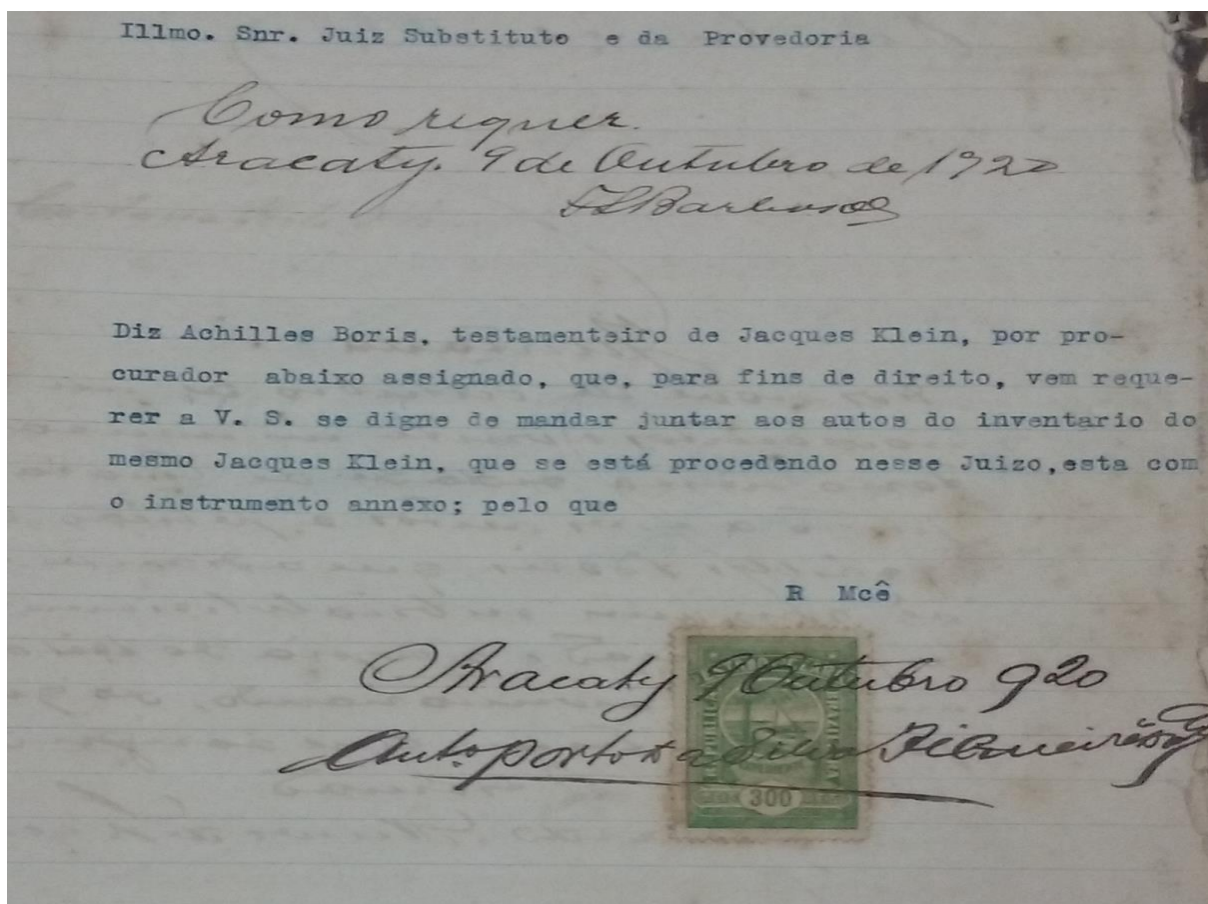 Illmo. Snr. Juiz Substituto e da Provedoria
Como requer.
Aracaty. 9 de Outubro de 1920
Barbosa
Diz Achilles Boris, testamenteiro de Jacques Klein, por pro-
curador abaixo assignado, que, para fins de direito, vem reque-
rer a V. S. se digne de mandar juntar aos autos do inventario do
mesmo Jacques Klein, que se está procedendo nesse Juizo,esta com
o instrumento annexo; pelo que
R Mcê
Aracaty 9 Outubro 920
Silva
300